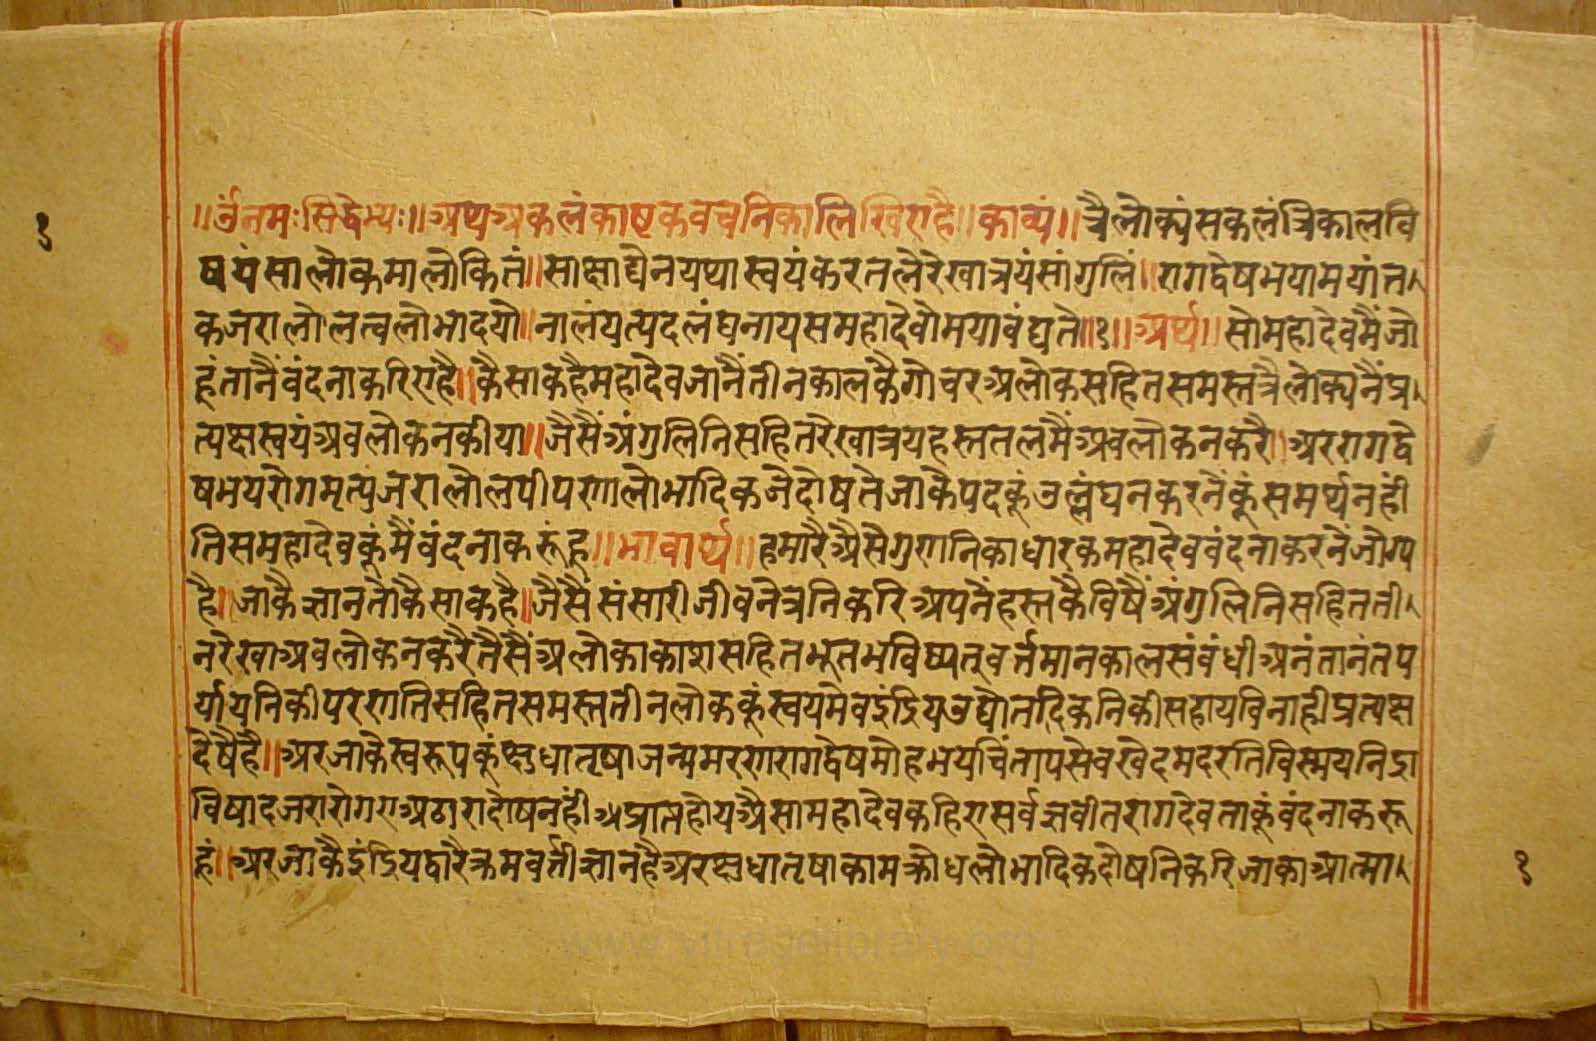 ॥ॐनमःसिद्धेभ्यः॥अथअकलंकाष्टकवचनिकालिखिएहै॥काव्यं॥त्रैलोक्यंसकलंत्रिकालवि
षयंसालोकमालोकितं॥साक्षाद्येनयथास्वयंकरतलेरेखात्रयंसांगुलिं॥रागद्वेषभयामयांत
कजरालोलत्वलोभादयो॥नालंयत्पदलंघनायसमहादेवोमयावंद्यते॥१॥अर्थ॥सोमहादेवमैंजो
हूंतानैंवंदनाकरिएहै॥कैसाकहैमहादेवजानैंतीनकालकैगोचरअलोकसहितसमस्तत्रैलोक्यनैंप्र
त्यक्षस्वयंअवलोकनकीया॥जैसैंअंगुलिनिसहितरेखात्रयहस्ततलमैंअवलोकनकरै।अररागद्वे
षभयरोगमृत्युजरालोलपीपणालोभादिकजेदोषतेजाकैपदकूंउल्लंघनकरनैंकूंसमर्थनहीं
तिसमहादेवकूंमैंवंदनाकरूंहू॥भावार्थ॥हमारैअैसैगुणनिकाधारकमहादेववंदनाकरनेंजोग्य
है॥जाकैज्ञानतोकैसाकहै॥जैसैंसंसारीजीवनेत्रनिकरिअपनेंहस्तकैविषैंअंगुलिनिसहितती
नरेखाअवलोकनकरैतैंसैंअलोकाकाशसहितभूतभविष्यत्वर्त्तमानकालसंबंधीअनंतानंतप
र्यायनिकीपरणतिसहितसमस्ततीनलोककूंस्वयमेवइंद्रियउद्योतादिकनिकीसहायविनाहीप्रत्यक्ष
देषैहै॥अरजाकेस्वरूपकूंक्षुधातृषाजन्ममरणरागद्वेषमोहभयचिंतापसेवखेदमदरतिविस्मयनिद्रा
विषादजरारोगएअठारादोषनहींप्राप्तहोयअैसामहादेवकहिएसर्वज्ञवीतरागदेवताकूंवंदनाकरू
हूं॥अरजाकैइंद्रियद्वारैक्रमवर्तीज्ञानहैअरक्षुधातृषाकामक्रोधलोभादिकदोषनिकरिजाकाआत्मा
१
१
www.vitragelibrary.org